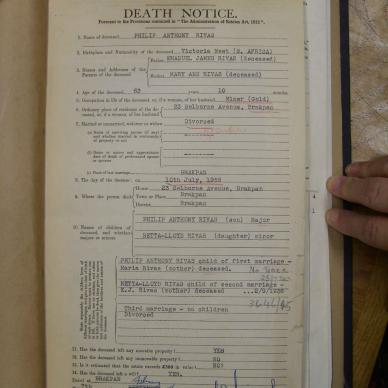 DEATH NOTICE.
Pursuant to the Provisions contained in "The Administration of Estates Act, 1913"
1. Name of deceased PHILIP ANTHONY RIVAS
2. Birthplace and Nationality of the deceased Victoria West (S. AFRICA)
3. Names and Addresses of the Parents of the deceased
Father EMANUEL JAMES RIVAS (deceased)
Mother MARY ANN RIVAS (deceased)
4. Age of the deceased 63 years 10 months
5. Occupation in life of the deceased, or, if a woman, of her husband Miner (Gold)
6. Ordinary place of residence of the deceased, or, if a woman, of her husband 23 Selborne Avenue, Brakpan
7. Married or unmarried, widower or widow Divorced
BRAKPAN
8. The day of the decease on 10th July, 1958
9. Where the person died
House 23 Selborne Avenue, Brakpan
Town or Place Brakpan
District Brakpan
10. Names of children of deceased, and whether majors or minors
PHILIP ANTHONY RIVAS (son) Major
RETTA-LLOYD RIVAS (daughter) minor
PHILIP ANTHONY RIVAS child of first marriage -
Maria Rivas (mother) deceased. No Trace
RETTA-LLOYD RIVAS child of second marriage -
E.J. Rivas (mother) deceased ..2/9/1938
3644/45
Third marriage - no children
Divorced
11. Has the deceased left any movable property? YES
12. Has the deceased left any immovable property? NO
13. Is it estimated that the estate exceeds £300 in value? NO?
14. Has the deceased left a YES.
Dated at BRAKPAN